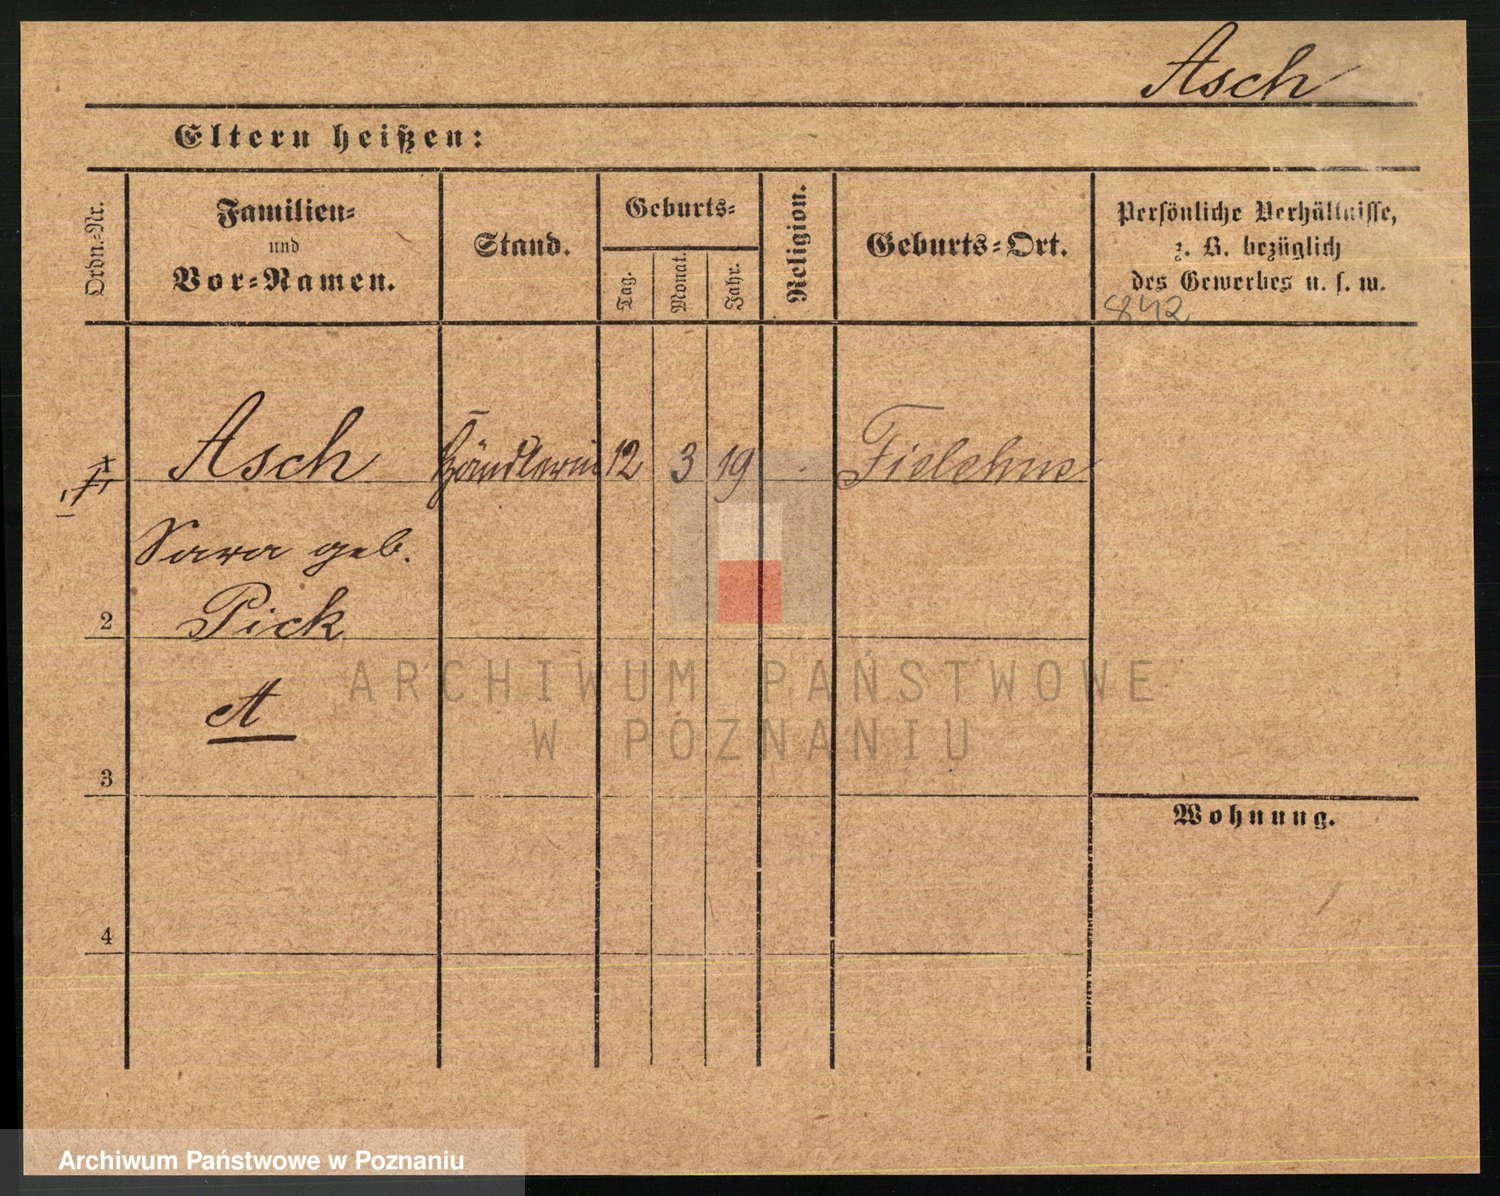 Asch
Eltern heißen:
Ordn.-Nr.
Familien-
und
Vor-Namen.
Stand.
Geburts-
Tag.
Monat.
Jahr.
Religion.
Geburts-Ort.
Persönliche Verhältnisse,
z. B. bezüglich
des Gewerbes u. s. w.
842
1 Asch Händlerin 12 3 19 Filehne
Sara geb.
2 Pick
A
3
Wohnung.
4
ARCHIWUM PAŃSTWOWE
W POZNANIU
Archiwum Państwowe w Poznaniu